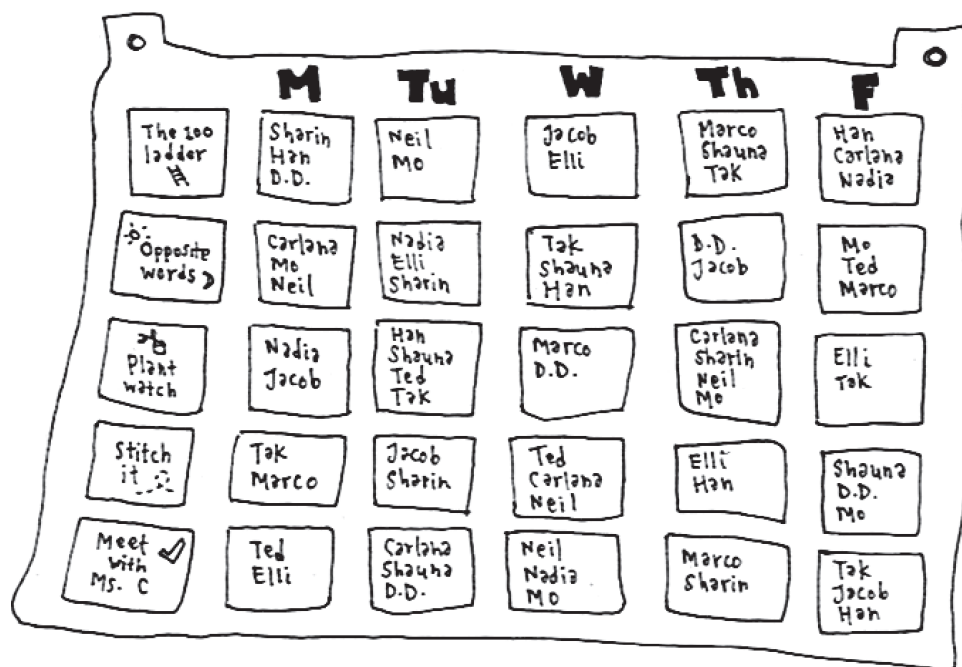 M Tu W Th F
The 100
ladder
Sharin
Han
D.D.
Neil
Mo
Jacob
Elli
Marco
Shauna
Tak
Han
Carlana
Nadia
Opposite
words
Carlana
Mo
Neil
Nadia
Elli
Sharin
Tak
Shauna
Han
D.D.
Jacob
Mo
Ted
Marco
Plant
watch
Nadia
Jacob
Han
Shauna
Ted
Tak
Marco
D.D.
Carlana
Sharin
Neil
Mo
Elli
Tak
Stitch
it
Tak
Marco
Jacob
Sharin
Ted
Carlana
Neil
Elli
Han
Shauna
D.D.
Mo
Meet
with
Ms. C
Ted
Elli
Carlana
Shauna
D.D.
Neil
Nadia
Mo
Marco
Sharin
Tak
Jacob
Han